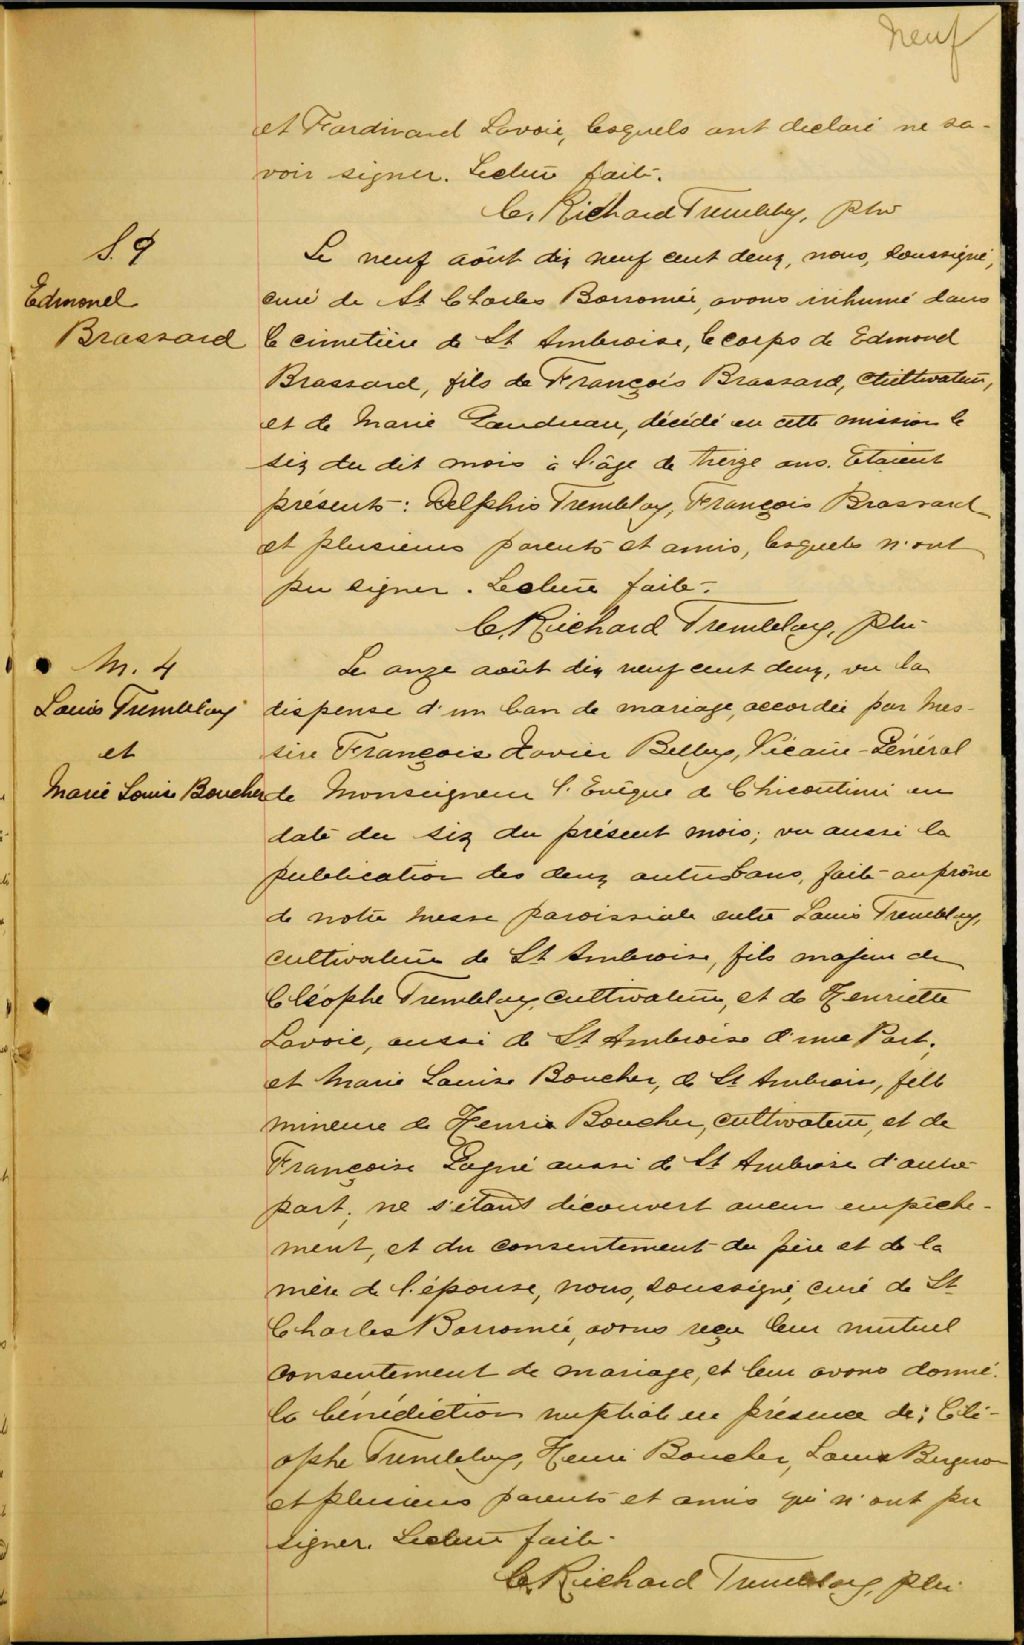 neuf
et Ferdinand Lavoie, lesquels ont declaré ne sa-
voir signer. Lecture faite.
C. Richard Tremblay, ptre
S. 9
Edmond
Brassard
Le neuf août dix neuf cent deux, nous, soussigné,
curé de St Charles Borromée, avons inhumé dans
le cimetière de St Ambroise, le corps de Edmond
Brassard, fils de François Brassard, cultivateur,
et de Marie Gaudreau, décédé en cette mission le
six du dit mois à l'âge de treize ans. Etaient
présents: Delphis Tremblay, François Brassard
et plusieurs parents et amis, lesquels n'ont
pu signer. Lecture faite.
C. Richard Tremblay, ptre
M. 4
Louis Tremblay
et
Marie Louise Boucher
Le onze août dix neuf cent deux, vu la
dispense d'un ban de mariage, accordée par Mes-
sire François Xavier Belley, Vicaire-Général
de Monseigneur l'Evêque de Chicoutimi en
date du six du présent mois; vu aussi la
publication des deux autres bans, faite au prône
de notre messe paroissiale entre Louis Tremblay,
cultivateur de St Ambroise, fils majeur de
Cléophe Tremblay, cultivateur, et de Henriette
Lavoie, aussi de St Ambroise d'une Part;
et Marie Louise Boucher, de St Ambroise, fille
mineure de Henri Boucher, cultivateur, et de
Françoise Gagné aussi de St Ambroise d'autre
part; ne s'étant découvert aucun empêche-
ment, et du consentement du père et de la
mère de l'épouse, nous, soussigné, curé de St
Charles Borromée, avons reçu leur mutuel
consentement de mariage, et leur avons donné
la bénédiction nuptiale en présence de: Clé-
ophe Tremblay, Henri Boucher, Louis Bergeron
et plusieurs parents et amis qui n'ont pu
signer. Lecture faite.
C. Richard Tremblay, ptre